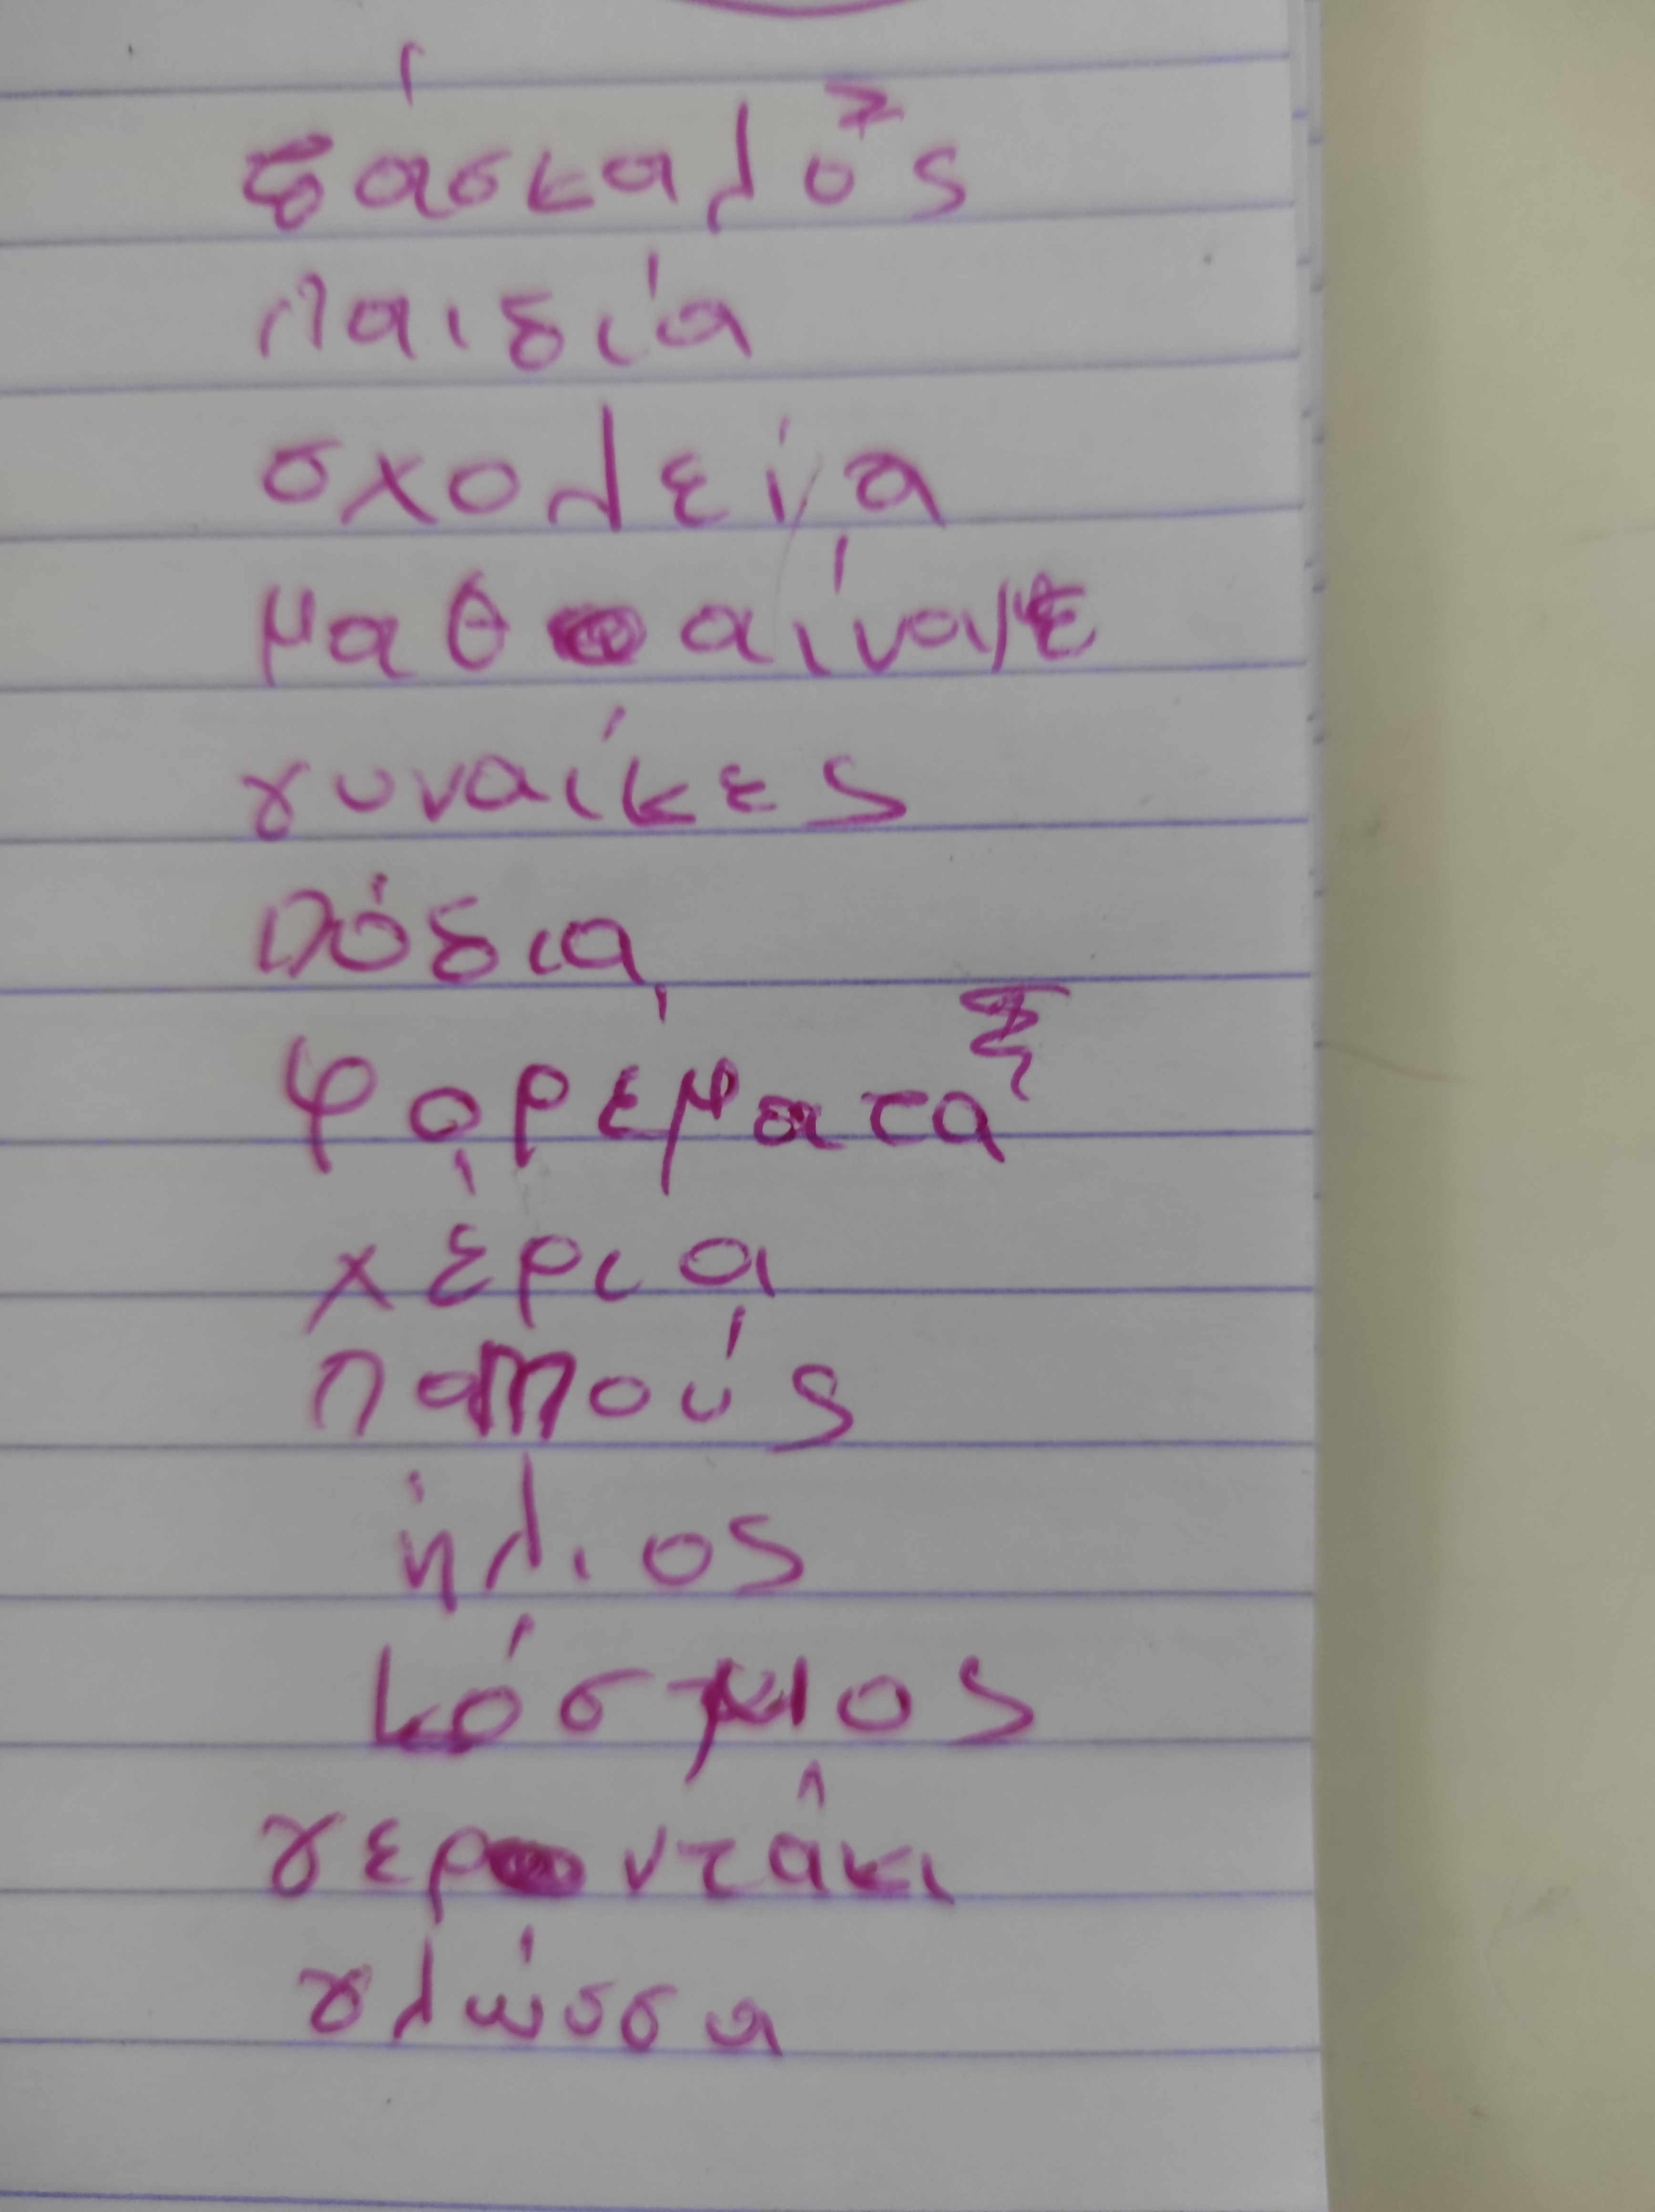 δάσκαλος
παιδιά
σχολεία
μαθαίναμε
γυναίκες
πόδια
φορέματα
χέρια
παππούς
ήλιος
κόσμιος
γεροντάκι
γλώσσα